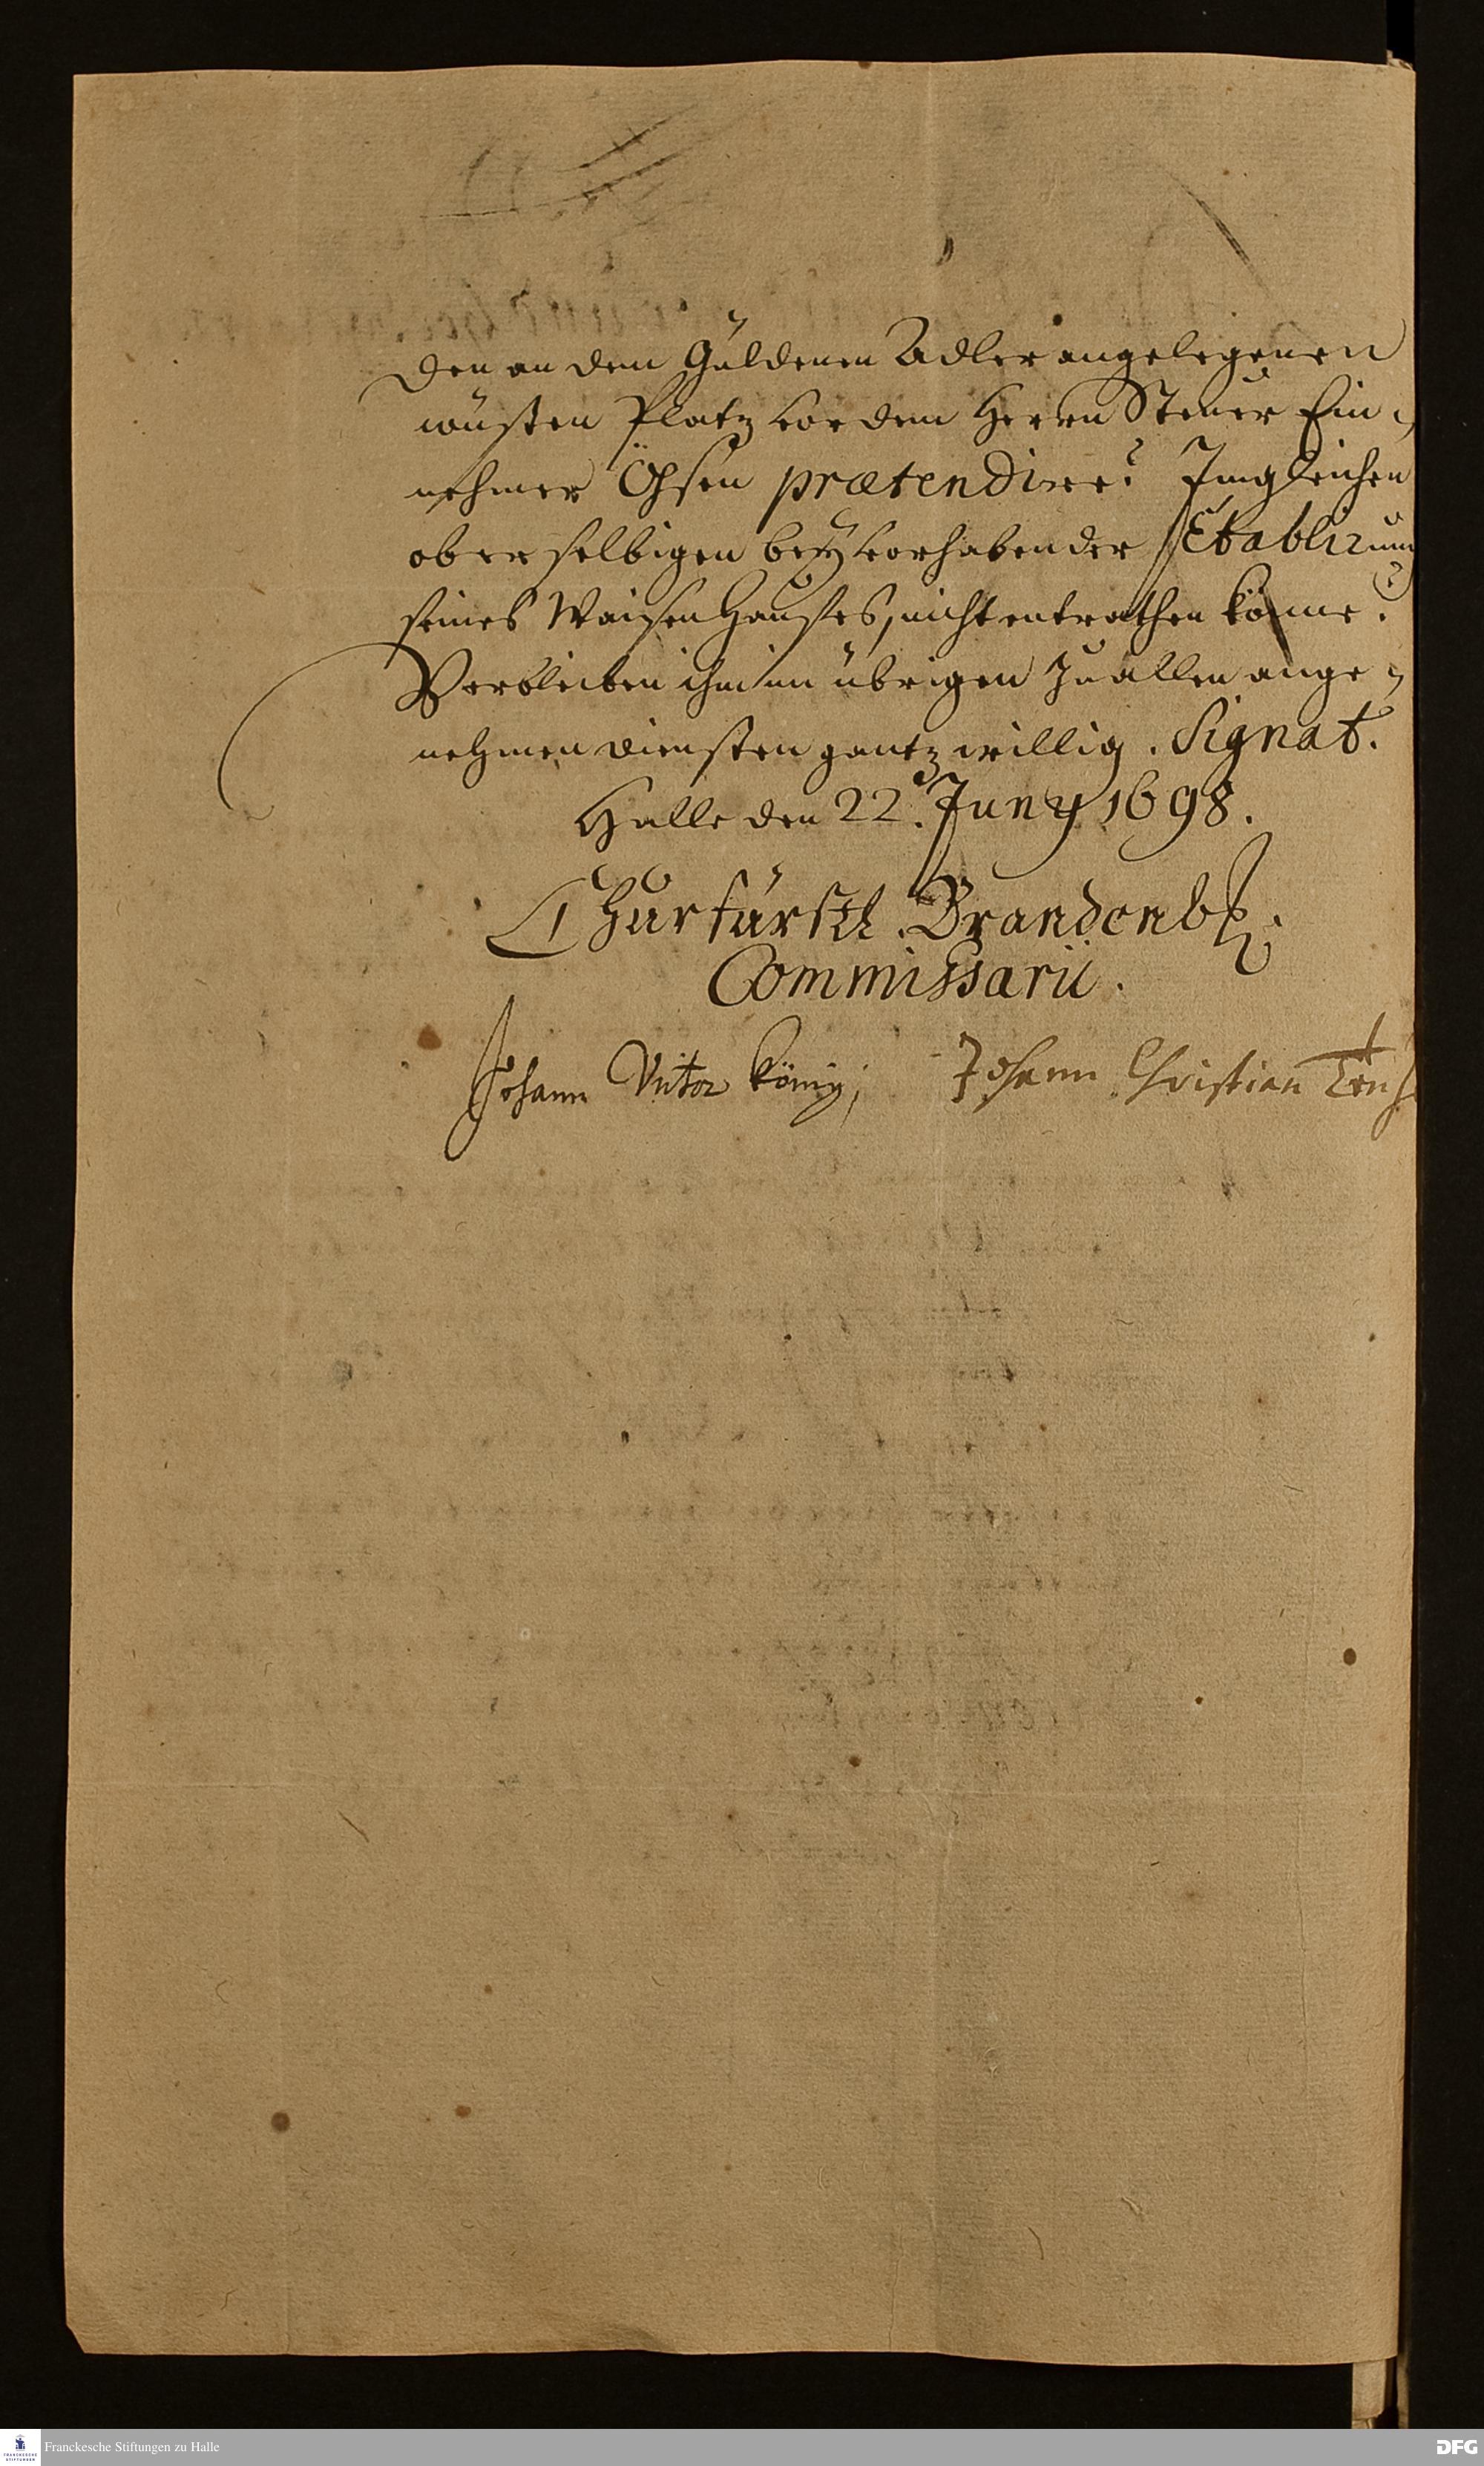 den an dem Güldenen Adler angelegenen
wüsten Platz vor dem Herrn Steuer Ein-
nehmer Ochsen prætendire? Imgleichen
ob er selbigen bey vorhabender Etablirung
seines Waisen Hauses, nicht entrathen könne?
Verbleiben ihm im übrigen zu allen ange-
nehmen diensten gantz willig. Signat.
Halle den 22. Juny 1698.
Churfürstl. Brandenb.
Commissarii.
Johann Victor König; Johann Christian
Franckesche Stiftungen zu Halle
DFG